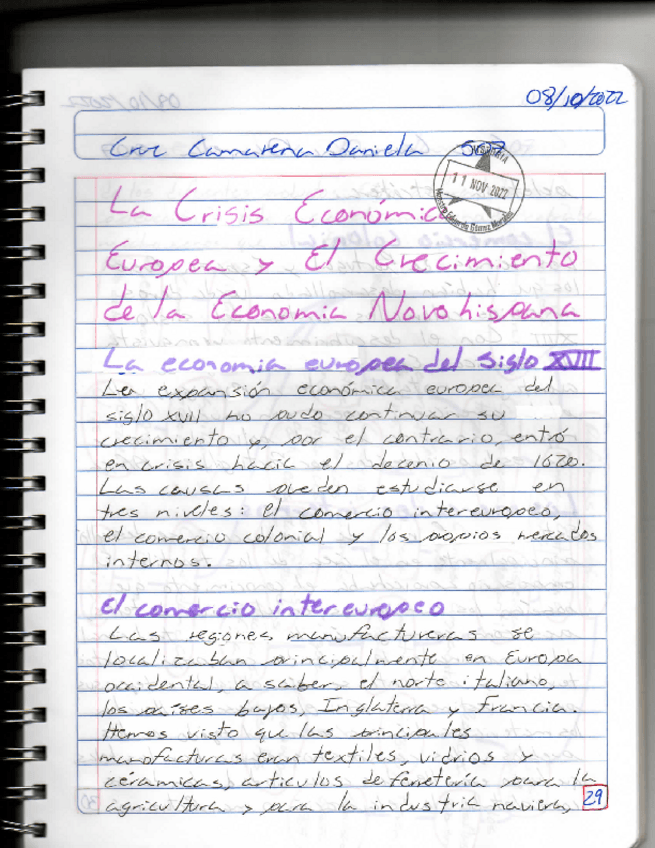 08/10/2022
Cruz Camarena Daniela 507
11 NOV 2022
La Crisis Económica
Europea y El Crecimiento
de la Economia Novohispana
La economia europea del siglo XVII
La expansión económica europea del
siglo XVII no pudo continuar su
crecimiento y, por el contrario, entró
en crisis hacia el decenio de 1620.
Las causas pueden estudiarse en
tres niveles: el comercio intereuropeo,
el comercio colonial y los propios mercados
internos.
El comercio intereuropeo
Las regiones manufactureras se
localizaban principalmente en Europa
occidental, a saber el norte italiano,
los países bajos, Inglaterra y Francia.
Hemos visto que las principales
manufacturas eran textiles, vidrios y
cerámicas, articulos de ferretería para la
agricultura y para la industria naviera,
29